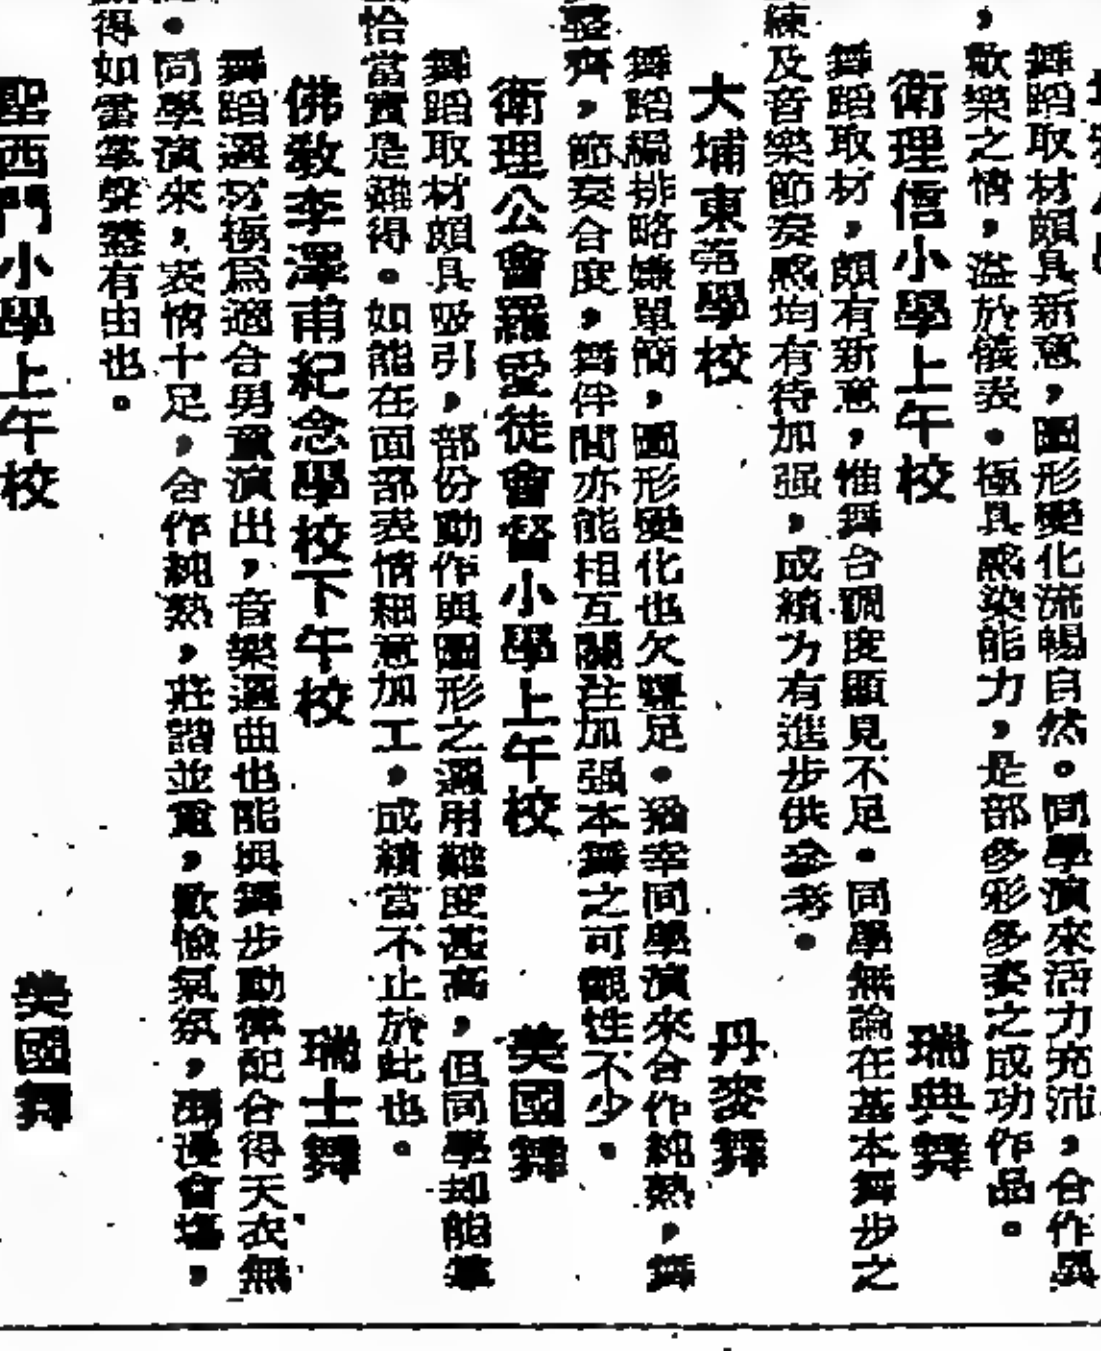 舞蹈取材頗具新意，圖形變化流暢自然。同學演來活力充沛，合作與
，歡樂之情，溢於儀表。極具感染能力，是部多彩多姿之成功作品。
衛理信小學上午校 瑞典舞
舞蹈取材，頗有新意，惟舞台調度顯見不足。同學無論在基本舞步之
練及音樂節奏感均有待加强，成績方有進步供參考。
大埔東莞學校 丹麥舞
舞蹈編排略嫌單簡，圖形變化也欠豐足。猶幸同學演來合作純熟，舞
整齊，節奏合度，舞伴間亦能相互關注加强本舞之可觀性不少。
衛理公會羅愛徒會督小學上午校 美國舞
舞蹈取材頗具吸引，部份動作與圖形之運用難度甚高，但同學却能掌
恰當實是難得。如能在面部表情細意加工，成績當不止於此也。
佛敎李澤甫紀念學校下午校 瑞士舞
舞蹈選材極爲適合男童演出，音樂選曲也能與舞步動律配合得天衣無
。同學演來，表情十足，合作純熟，莊諧並重，歡愉氣氛，瀰漫會塲，
得如雷掌聲蓋有由也。
聖西門小學上午校 美國舞